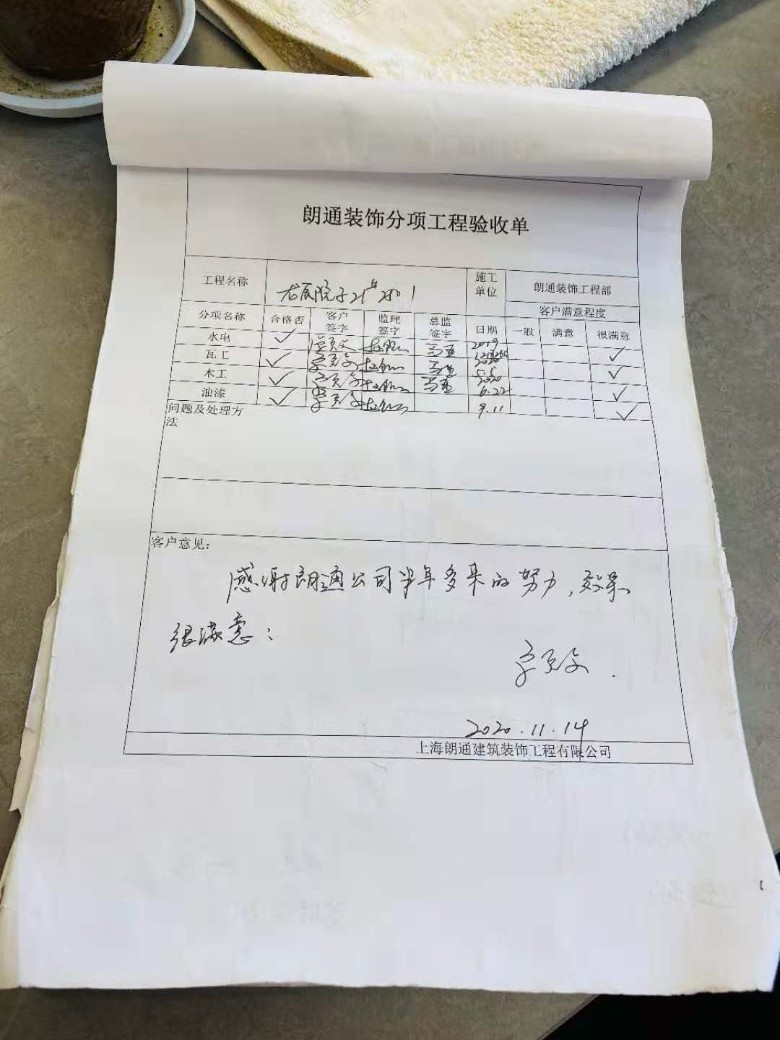 朗通装饰分项工程验收单
工程名称 21# 施工单位 朗通装饰工程部
分项名称 合格否 客户签字 监理签字 总监签字 日期 客户满意程度
一般 满意 很满意
水电 ✓ 2019 ✓
瓦工 ✓ 5.5 ✓
木工 ✓ 2020 6.22 ✓
油漆 ✓ 9.11 ✓
问题及处理方法
客户意见:
感谢朗通公司半年多来的努力,效果
很满意;
2020.11.14
上海朗通建筑装饰工程有限公司